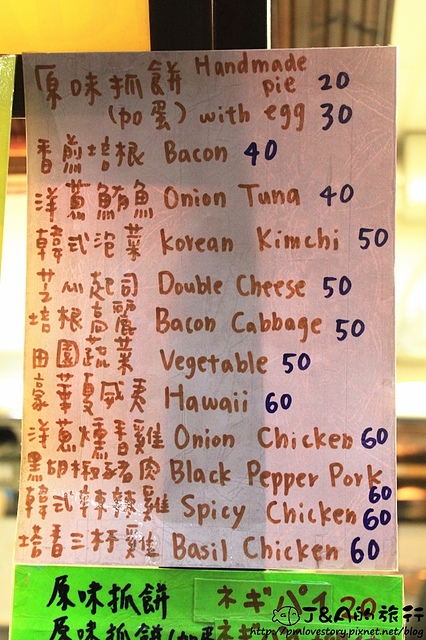 原味抓餅 Handmade pie 20
(加蛋) with egg 30
香煎培根 Bacon 40
洋蔥鮪魚 Onion Tuna 40
韓式泡菜 Korean Kimchi 50
芝心起司 Double Cheese 50
培根高麗 Bacon Cabbage 50
田園蔬菜 Vegetable 50
豪華夏威夷 Hawaii 60
洋蔥燻香雞 Onion Chicken 60
黑胡椒豬肉 Black Pepper Pork 60
韓式辣辣雞 Spicy Chicken 60
塔香三杯雞 Basil Chicken 60
原味抓餅 ネギパイ 20
原味抓餅(加蛋 ネギ
J&A的旅行
http://pmlovestory.pixnet.net/blog